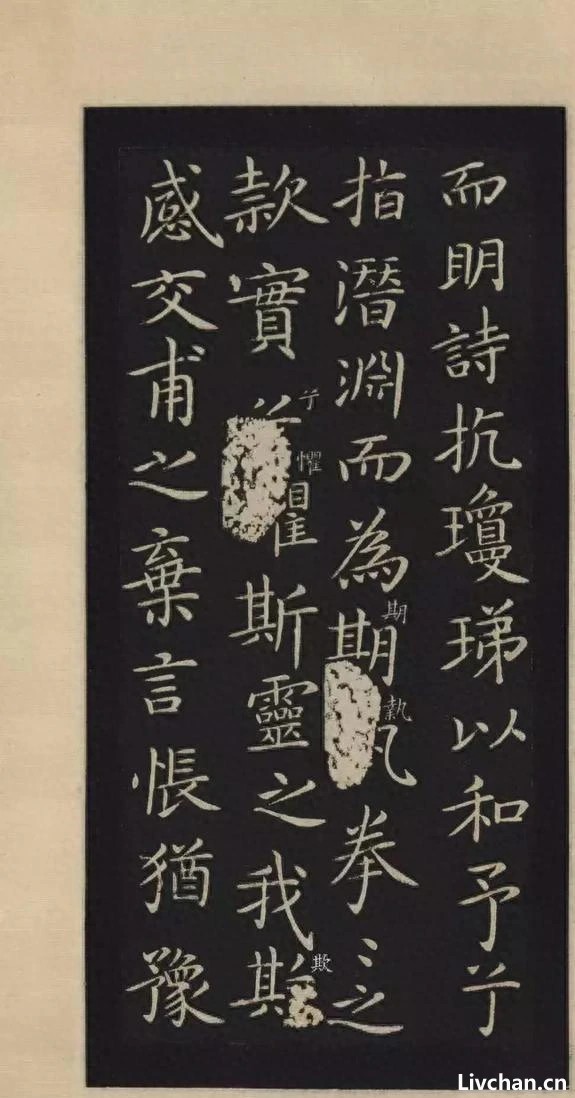 而明詩抗瓊珶以和予兮
指潛淵而為期執拳〻之
款實兮懼斯靈之我欺
感交甫之棄言悵猶豫
Livchan.cn